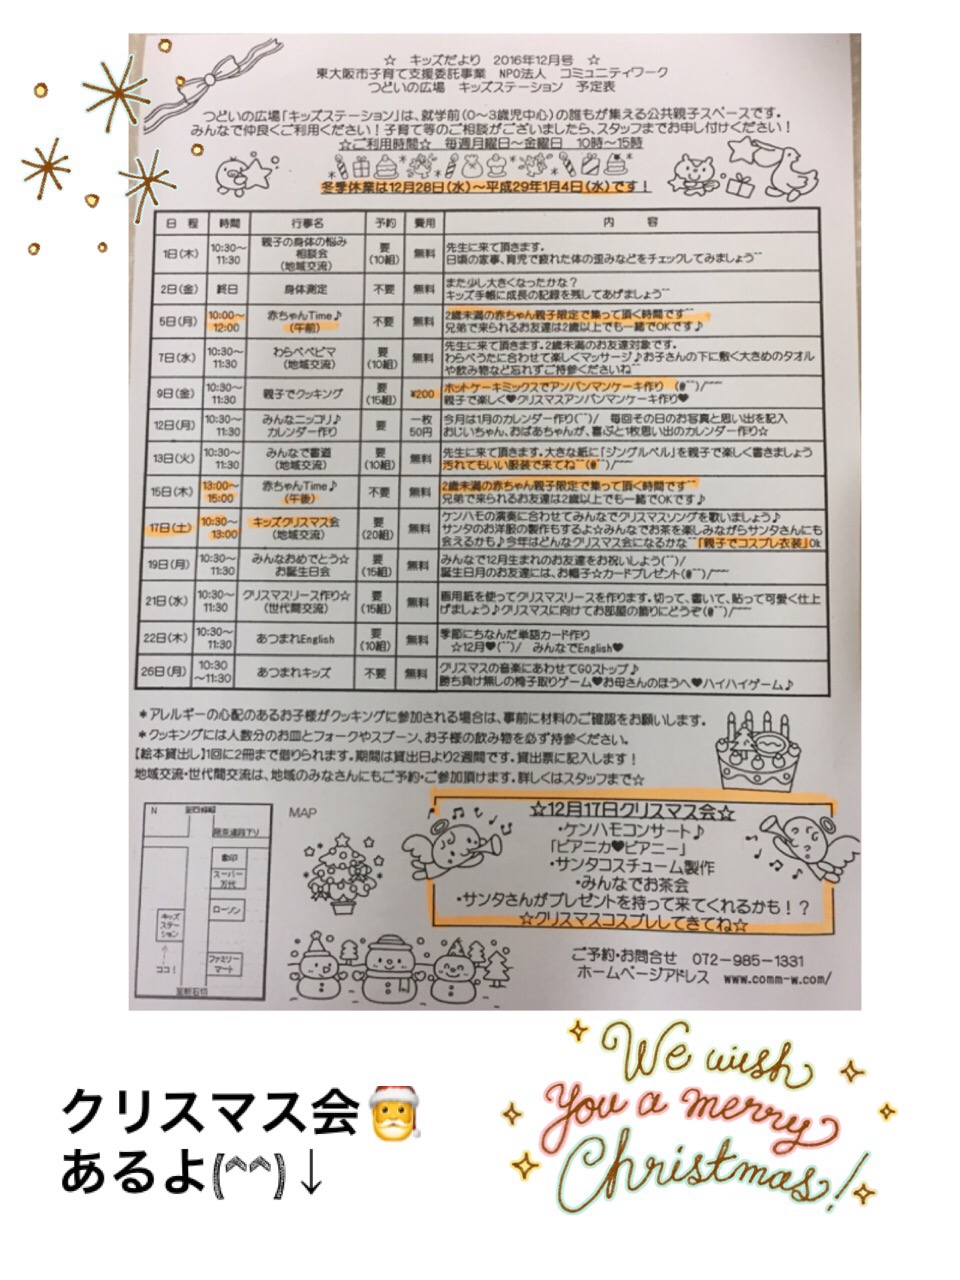 ☆ キッズだより 2016年12月号 ☆
東大阪市子育て支援委託事業 NPO法人 コミュニティワーク
つどいの広場 キッズステーション 予定表
つどいの広場「キッズステーション」は、就学前(0〜3歳児中心)の誰もが集える公共親子スペースです。
みんなで仲良くご利用ください！子育て等のご相談がございましたら、スタッフまでお申し付けください！
☆ご利用時間☆ 毎週月曜日〜金曜日 10時〜15時
冬季休業は12月28日(水)〜平成29年1月4日(水)です！
日程 時間 行事名 予約 費用 内容
1日(木) 10:30〜11:30 親子の身体の悩み相談会(地域交流) 要(10組) 無料 先生に来て頂きます。
日頃の家事、育児で疲れた体の歪みなどをチェックしてみましょう^^
2日(金) 終日 身体測定 不要 無料 また少し大きくなったかな？
キッズ手帳に成長の記録を残してあげましょう^^
5日(月) 10:00〜12:00 赤ちゃんTime♪(午前) 不要 無料 2歳未満の赤ちゃん親子限定で集って頂く時間です^^
兄弟で来られるお友達は2歳以上でも一緒でOKです♪
7日(水) 10:30〜11:30 わらべべビマ(地域交流) 要(10組) 無料 先生に来て頂きます。2歳未満のお友達対象です。
わらべうたに合わせて楽しくマッサージ♪お子さんの下に敷く大きめのタオル
や飲み物など忘れずご持参くださいね^^
9日(金) 10:30〜11:30 親子でクッキング 要(15組) ¥200 ホットケーキミックスでアンパンマンケーキ作り (@^^)/~~~
親子で楽しく♥クリスマスアンパンマンケーキ作り♥
12日(月) 10:30〜11:30 みんなニッコリ♪カレンダー作り 要 一枚50円 今月は1月のカレンダー作り(^^)/ 毎回その日のお写真と思い出を記入
おじいちゃん、おばあちゃんが、喜ぶと1枚思い出のカレンダー作り☆
13日(火) 10:30〜11:30 みんなで書道(地域交流) 要(10組) 無料 先生に来て頂きます。大きな紙に「ジングルベル」を親子で楽しく書きましょう
汚れてもいい服装で来てね^^(@^^)/~~~
15日(木) 13:00〜15:00 赤ちゃんTime♪(午後) 不要 無料 2歳未満の赤ちゃん親子限定で集って頂く時間です^^
兄弟で来られるお友達は2歳以上でも一緒でOKです♪
17日(土) 10:30〜13:00 キッズクリスマス会(地域交流) 要(20組) 無料 ケンハモの演奏に合わせてみんなでクリスマスソングを歌いましょう♪
サンタのお洋服の製作もするよ☆みんなでお茶を楽しみながらサンタさんにも
会えるかも♪今年はどんなクリスマス会になるかな^^「親子でコスプレ衣装」Ok
19日(月) 10:30〜11:30 みんなおめでとう☆お誕生日会 要(15組) 無料 みんなで12月生まれのお友達をお祝いしよう(^^)/
誕生日月のお友達には、お帽子☆カードプレゼント(@^^)/~~~
21日(水) 10:30〜11:30 クリスマスリース作り☆(世代間交流) 要(15組) 無料 画用紙を使ってクリスマスリースを作ります。切って、書いて、貼って可愛く仕上
げましょう♪クリスマスに向けてお部屋の飾りにどうぞ(@^^)/~~~
22日(木) 10:30〜11:30 あつまれEnglish 要(10組) 無料 季節にちなんだ単語カード作り
☆12月♥(^^)/ みんなでEnglish♥
26日(月) 10:30〜11:30 あつまれキッズ 不要 無料 クリスマスの音楽にあわせてGOストップ♪
勝ち負け無しの椅子取りゲーム♥お母さんのほうへ♥ハイハイゲーム♪
＊アレルギーの心配のあるお子様がクッキングに参加される場合は、事前に材料のご確認をお願いします。
＊クッキングには人数分のお皿とフォークやスプーン、お子様の飲み物を必ず持参ください。
【絵本貸出し】1回に2冊まで借りられます。期間は貸出日より2週間です。貸出票に記入します！
地域交流・世代間交流は、地域のみなさんにもご予約・ご参加頂けます。詳しくはスタッフまで☆
N
MAP
スーパー
万代
ローソン
キッズ
ステー
ション
ココ！
ファミリー
マート
至新石切
☆12月17日クリスマス会☆
・ケンハモコンサート♪
「ピアニカ♥ピアニー」
・サンタコスチューム製作
・みんなでお茶会
・サンタさんがプレゼントを持って来てくれるかも！？
☆クリスマスコスプレしてきてね☆
ご予約・お問合せ 072-985-1331
ホームページアドレス www.comm-w.com/
クリスマス会🎅
あるよ(^^)↓
We wish
You a merry
Christmas!